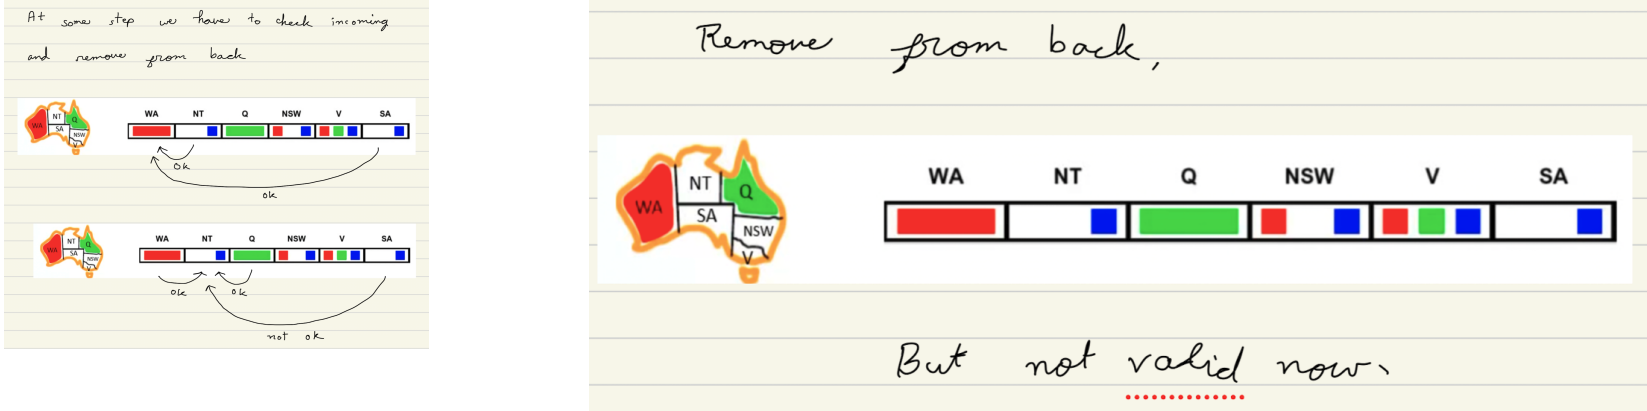 At some step we have to check incoming
and remove from back
WA NT Q NSW V SA
WA NT Q SA NSW V
ok
ok
WA NT Q NSW V SA
WA NT Q SA NSW V
ok ok
not ok
Remove from back,
WA NT Q NSW V SA
WA NT Q SA NSW V
But not valid now.